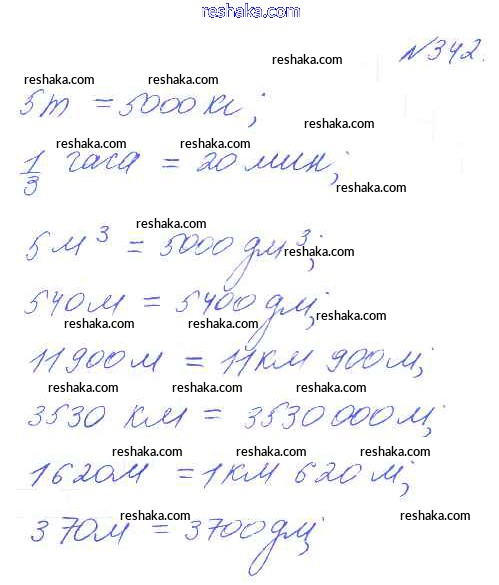 www.reshaka.com
№342.
reshaka.com
reshaka.com reshaka.com
5т = 5000 кг;
reshaka.com
reshaka.com reshaka.com
1/3 часа = 20 мин;
reshaka.com
reshaka.com
5 м³ = 5000 дм³;
reshaka.com reshaka.com
540м = 5400 дм;
reshaka.com reshaka.com
11900м = 11км 900м;
reshaka.com reshaka.com reshaka.com
3530 км = 3530 000м;
reshaka.com reshaka.com
1620м = 1км 620м;
reshaka.com reshaka.com
370м = 3700дм;
reshaka.com reshaka.com